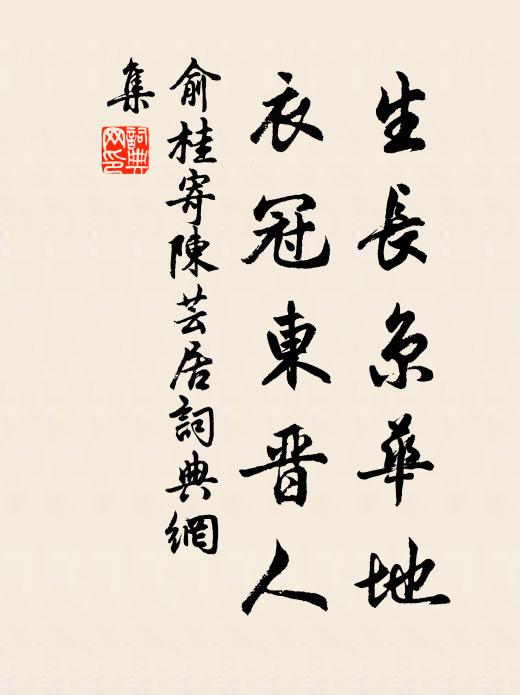 生長京華地
衣冠東晋人
俞桂寄陳芸居詞典網
集
詞典网印